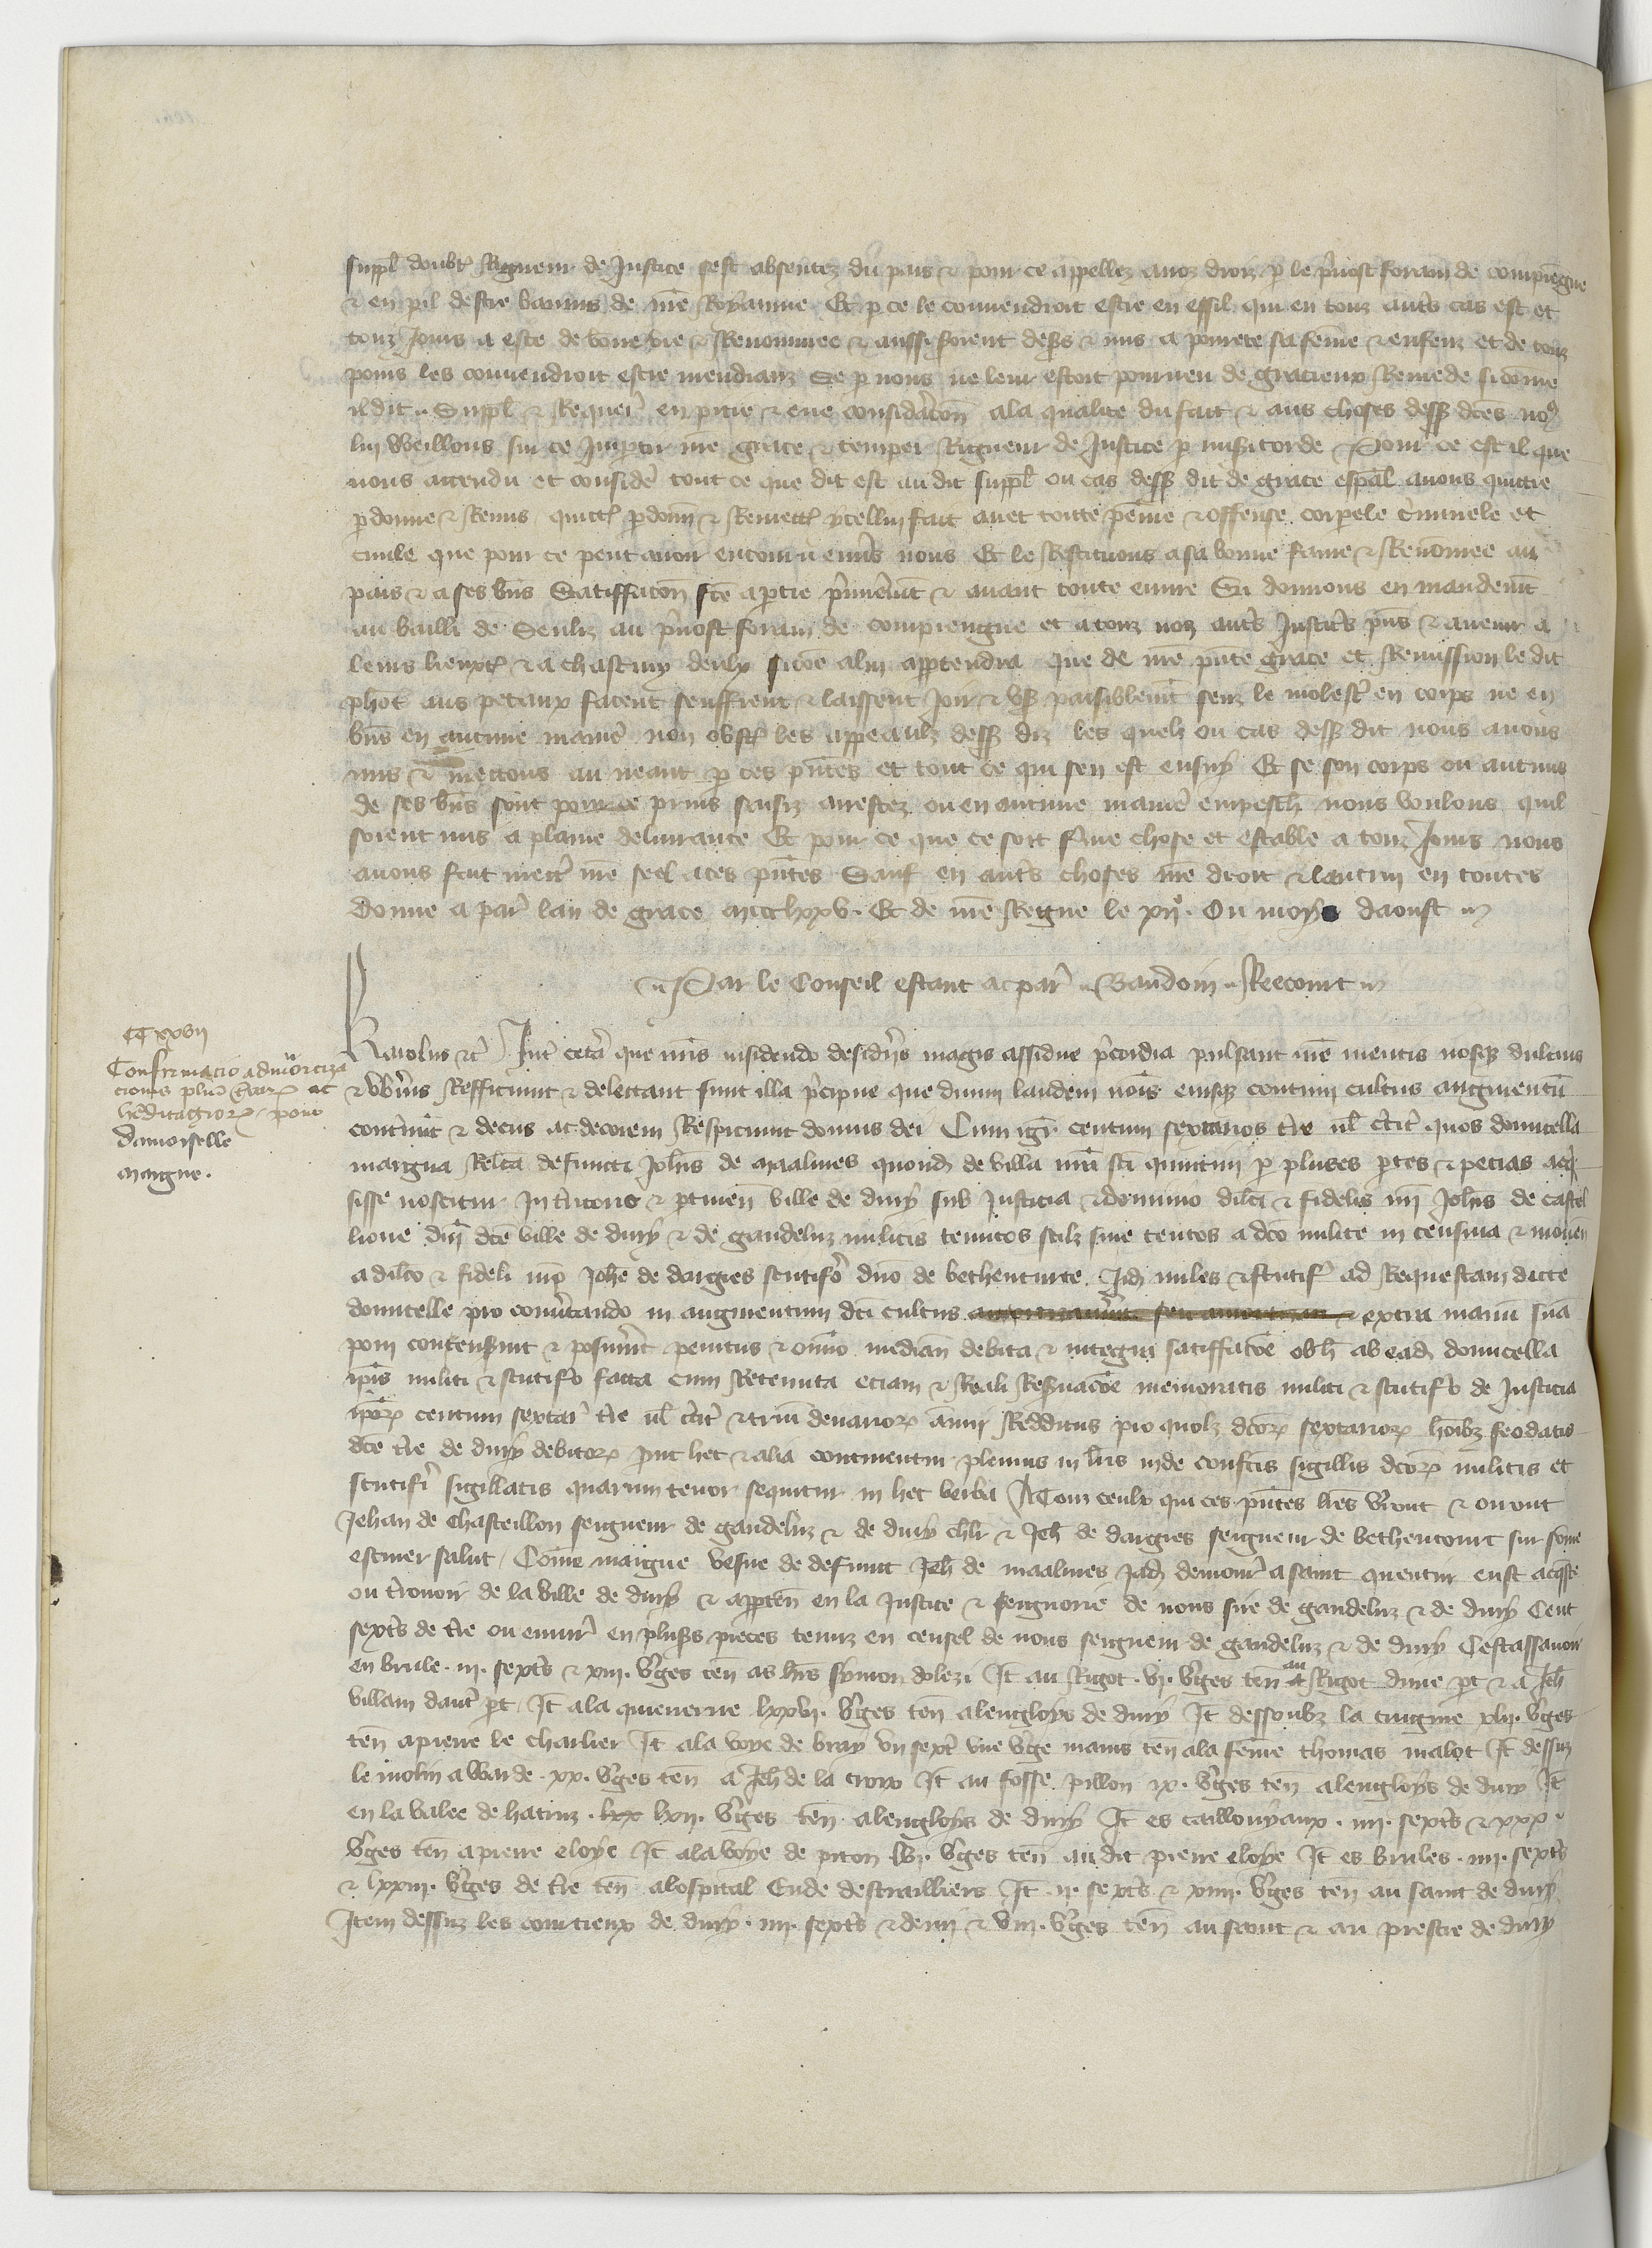 suppl doubt Rigueur de Justice sest absentez du pais & pour ce appellez a noz droiz p le pvost forain de compiegne
& en pil destre bannis de nre Royaume Et p ce le convendroit estre en essil qui en touz auts cas est et
touz jours a este de bone vie & Renommee & aussi seroient desers & mis a povrete sa feme & enfenz et de touz
poins les convendroit estre mendianz Se p nous ne leur estoit pourveu de gracieux Remede si come
il dit Suppl & Requer en pitie & eue consideracon a la qualite du fait & aus choses dess dces nos
lui Veillons sur ce Impartir nre grace & temper Rigueur de Justice p misicorde Pour ce est il que
nous attendu et consider tout ce que dit est au dit suppl ou cas dess dit de grace espal avons quittie
pdonne & Remis quitt pdonn & Remett ycellui fait avec toute peine & offense corpele criminele et
civile que pour ce peut avoir encouru envs nous Et le Restituons a sa bonne fame & Renomee au
pais & a ses bns Satiffacon fce a ptie pmieremt & avant toute euvre Si donnons en mandemt
au bailli de Senliz au pvost forain de compiengne et a touz noz auts Justics pns & avenir a
leurs lieuxt & a chascun deulx si coe a lui apptendra que de nre pnte grace et Remission le dit
phot aus petaux facent seuffrent & laissent joir & us paisiblemt senz le molest en corps ne en
bns en aucune manie non obst les appeaulz dess diz les quelz ou cas dess dit nous avons
mis & mectons au neant p ces pntes et tout ce qui sen est ensuy Et se son corps ou aucuns
de ses bns sont pour ce prins saisiz arrestez ou en aucune manie empesch nous voulons quil
soient mis a plaine delivrance Et pour ce que ce soit ferme chose et estable a touz Jours nous
avons fait mectre nre seel a ces pntes Sauf en auts choses nre droit & lautrui en toutes
Donne a par lan de grace mccclxxv. Et de nre Regne le xije. Ou moys daoust
Par le Conseil estant a par Baudoin Reecourt
CC xxvij
Confirmacio admortiza
cionis plium terrar ac
heditagior pour
damoiselle
Margue.
Karolus &c Int ceta que nris insidendo desidiis magis assidue pcordia pulsant nre mentis nosque dulcius
& ubius Refficiunt & delectant sunt illa pcipue que divini laudem nois eiusque continui cultus augmentu
continut & decus ac decorem Respiciunt domus dei Cum igr centum sextarios tre vl circit quos domicella
margua Relca defuncti Johis de maalines quond de villa nra sci quintini p pluses ptes & pecias acq
sisse noscitur In tritorio & ptinen ville de dury sub Justicia & dominio dilci & fidelis nri Johis de castel
lione dni dce ville de dury & de gandeluz militis tenutos scilz sive tentos a dco milite in censiva & moven
a dilco & fideli nro Johe de dargies scutifo dno de bethencurte Id miles & scutif ad Requestam dicte
domicelle pro convtando in augmentum dci cultus extra manu sua
poni consensint & posuert penitus & omio median debita & integra satiffacoe obh ab ead domicella
ipis militi & scutifo facta cum Retenuta eciam & Reali Resvacoe memoratis militi & scutifo de Justicia
ipor centum sextar tre vl circit & triu denarior annui Redditus pro quolz dcor sextarior hoibz feodatis
dce tre de dury debitor put hec & alia continentur plenius in lris inde confcis sigillis dcor militis et
scutiferi sigillatis quarum tenor sequitur in hec verba A Touz ceulx qui ces pntes lres verront & orront
Jehan de Chasteillon seigneur de gandeluz & de dury chlr & Jeh de dargies seigneur de bethencourt sur some
escuier salut Come maigne vesve de defunt Jeh de maalines jad demour a saint quentin eust acqste
ou trouoir de la ville de dury & apptens en la Justice & seignorie de nous sire de gandeluz & de dury Cent
sexts de tre ou environ en pluss pieces tenuz en censel de nous seigneur de gandeluz & de dury Cest assavoir
en brule .iij. sexts & xiij. Vges ten as hrs symon dolezi It au Rigot .vj. Vges ten au Rigot dune pt & a Jeh
villain daut pt It a la quenerue lxxvj. Vges ten alengloys de dury It dessoubz la cuigme xlij. Vges
ten a piere le charlier It a la voye de bray un sext une vge mains ten a la feme thomas malot It dessuz
le molin a Warde .xx. Vges ten a Jeh de la croix It au fosse pillon ix. Vges ten alengloys de dury It
en la valee de hatruz .lxx lxij. Vges ten alengloys de dury It es catillonyaux .iiij. sexts & xxx.
Vges ten a piere eloye It a la voye de piton lvj. Vges ten au dit piere eloye It es brules .iiij. sexts
& lxxiij. Vges de tre ten a lospital Eude destrailliers It .ij. sexts & xiiij. Vges ten au saint de dury
Item dessuz les courtieux de dury .iiij. sexts & demi & viij. Vges ten au saint & au prestre de dury